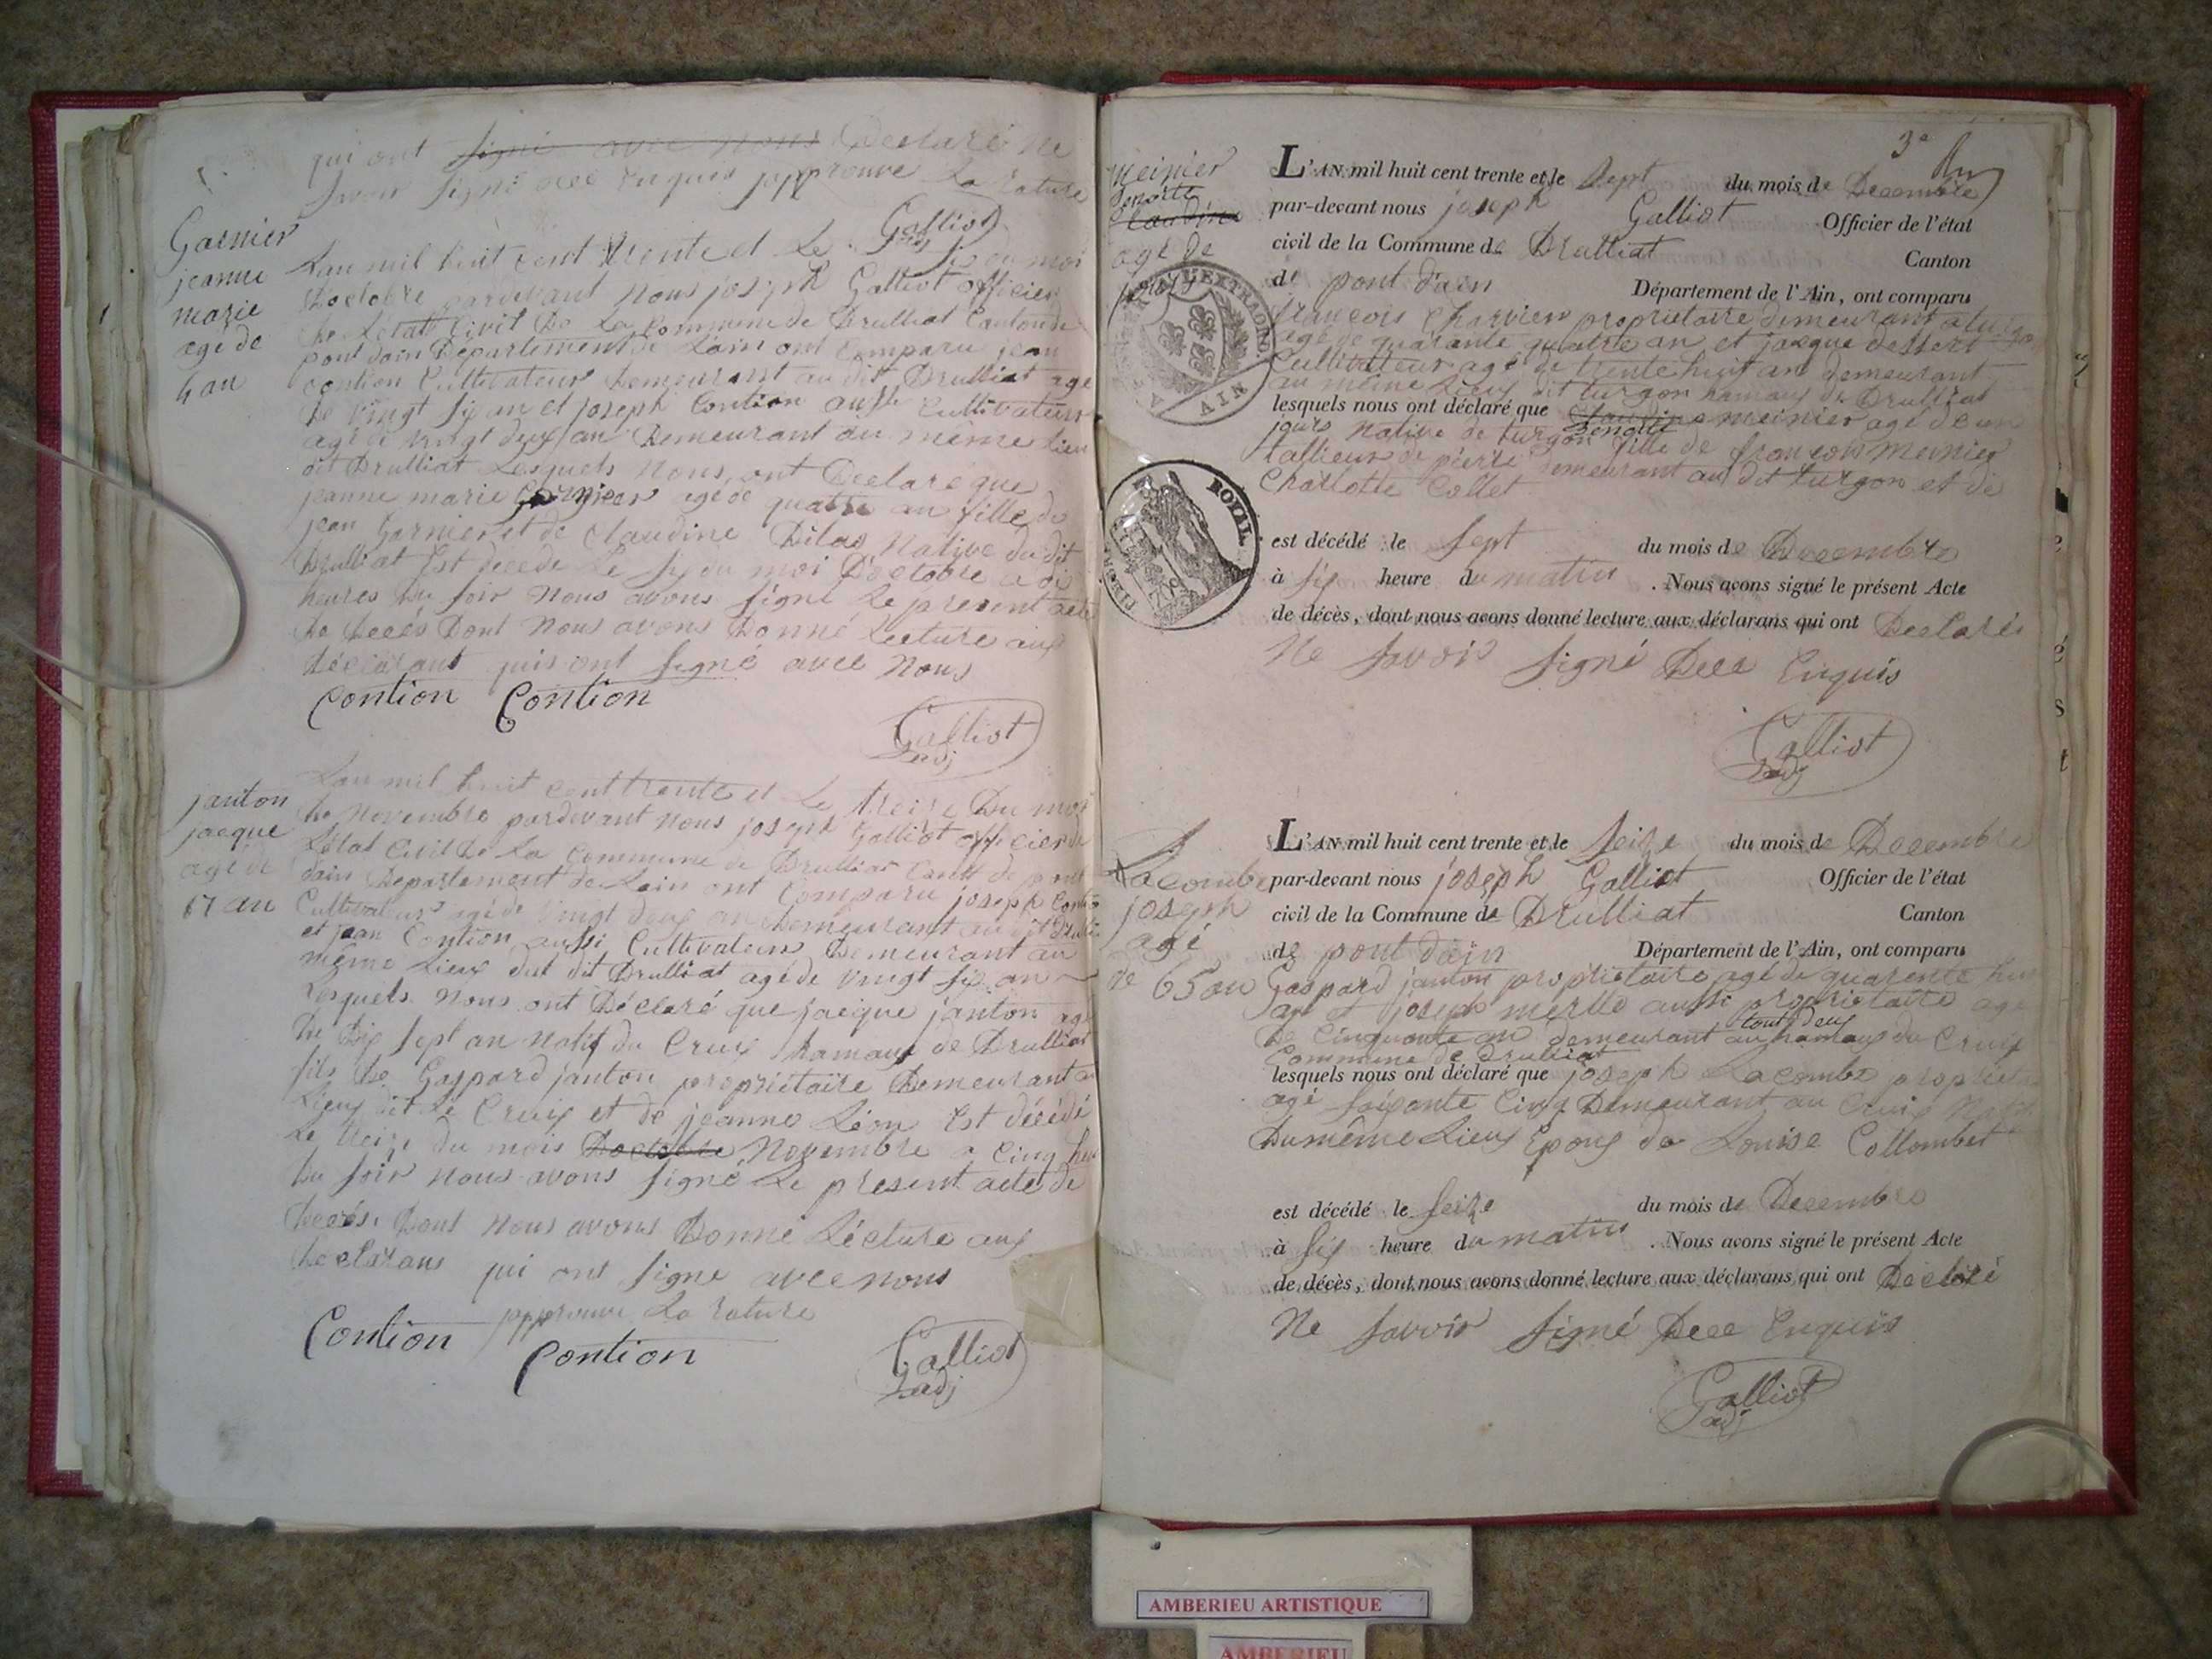 qui ont signé avec nous Declaré ne
savoir signé dee enquis japprouve La rature
Galliot
adj
Garnier
jeanne
marie
age de
4 an
Lan mil huit cent trente et Le six du moi
Doctobre pardevant nous joseph Galliot officier
De Létat Civil De La Commune de Drulliat Canton de
pont dain Département de Lain ont Comparu jean
Contion Cultivateur Demeurant au dit Drulliat age
De vingt six an et joseph Contion aussi Cultivateur
age de vingt deux an Demeurant au même Lieu
dit Drulliat Lesquels nous ont Declare que
jeanne marie Garnier age de quatre an fille de
jean Garnier et de Claudine Dilas Native du dit
Drulliat Est decede Le six du moi Doctobre a dix
heures Du soir nous avons signé Le present acte
De Decés Dont nous avons Donné Lecture aux
déclarant quis ont signé avec nous
Contion Contion
Galliot
adj
janton
jacque
age de
17 an
Lan mil huit cent trente et Le treize Du moi
De novembre pardevant nous joseph Galliot officier de
Létat Civil De La Commune de Drulliat Cant de pont
dain Departement de Lain ont Comparu joseph Contion
Cultivateur agé de vingt deux an Demeurant au dit Drulliat
et jean Contion aussi Cultivateur Demeurant au
même Lieux dit Drulliat age de vingt six an
Lesquels nous ont Déclaré que jacque janton age
De Dix sept an natif du Cruix hamaux de Drulliat
fils De Gaspard janton propriétaire Demeurant au
Lieux dit Le Cruix et de jeanne Léon Est décédé
Le treize du mois Doctobre Novembre a Cinq heu
Du soir nous avons signé Le present acte de
Decés Dont nous avons Donné Lecture aux
Declarans qui ont signe avec nous
japprouve La rature
Contion Contion
Galliot
adj
3e
meinier
benoite
Claudine
agé de
1 jour
L'AN mil huit cent trente et le sept du mois de Decembre
par-devant nous joseph Galliot Officier de l'état
civil de la Commune de Drulliat Canton
de pont dain Département de l'Ain, ont comparu
francois Charvien propriétaire demeurant a turgon
agé de quarante quatre an et jacque dessert
Cultivateur agé de trente huit an demeurant
au même Lieux dit turgon hamaux de Drulliat
lesquels nous ont déclaré que Claudine meinier agé de un
benoite
jours native de turgon fille de francois meinier
tallieur de pierre demeurant au dit turgon et de
Charlotte Collet
est décédé le sept du mois de Decembre
à six heure du matin . Nous avons signé le présent Acte
de décès, dont nous avons donné lecture aux déclarans qui ont Declaré
Ne savoir signé Dee Enquis
Galliot
adj
TIMBRE ROYAL
EXTRAORD. AIN
Lacombe
joseph
agé
de 65 an
L'AN mil huit cent trente et le seize du mois de Decembre
par-devant nous joseph Galliot Officier de l'état
civil de la Commune de Drulliat Canton
de pont dain Département de l'Ain, ont comparu
Gaspard janton propriétaire agé de quarente huit
an et joseph merlle aussi propriétaire age
De Cinquante an demeurant tout deux au hamaux du Cruix
Commune de Drulliat
lesquels nous ont déclaré que joseph Lacombe propriet
agé soixante Cinq Demeurant au Cruix Natif
Du même Lieux Epoux de Louise Collombet
est décédé le seize du mois de Decembre
à six heure du matin . Nous avons signé le présent Acte
de décès, dont nous avons donné lecture aux déclarans qui ont Declaré
Ne savoir signé Dee Enquis
Galliot
adj
AMBERIEU ARTISTIQUE
AMBERIEU